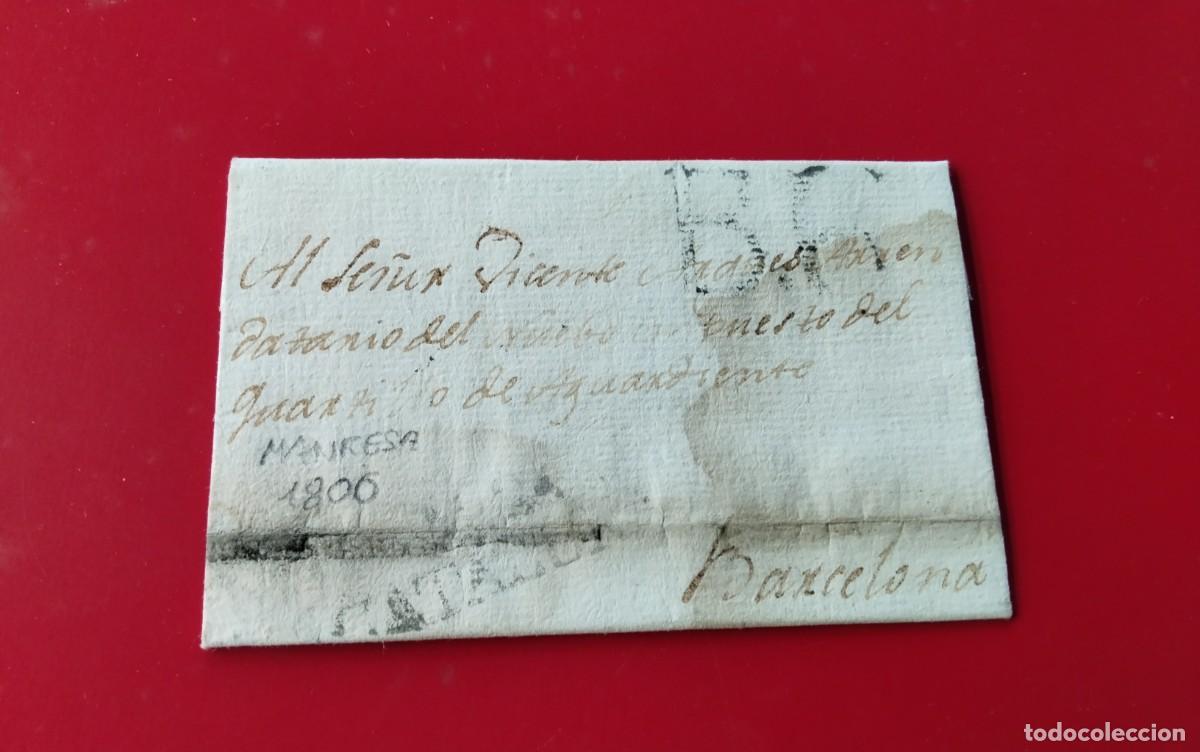 Al Señor Vicente Andres Arren
datario del Nuebo impuesto del
quartillo de Aguardiente
MANRESA
1806
CATALU
Barcelona
todocoleccion